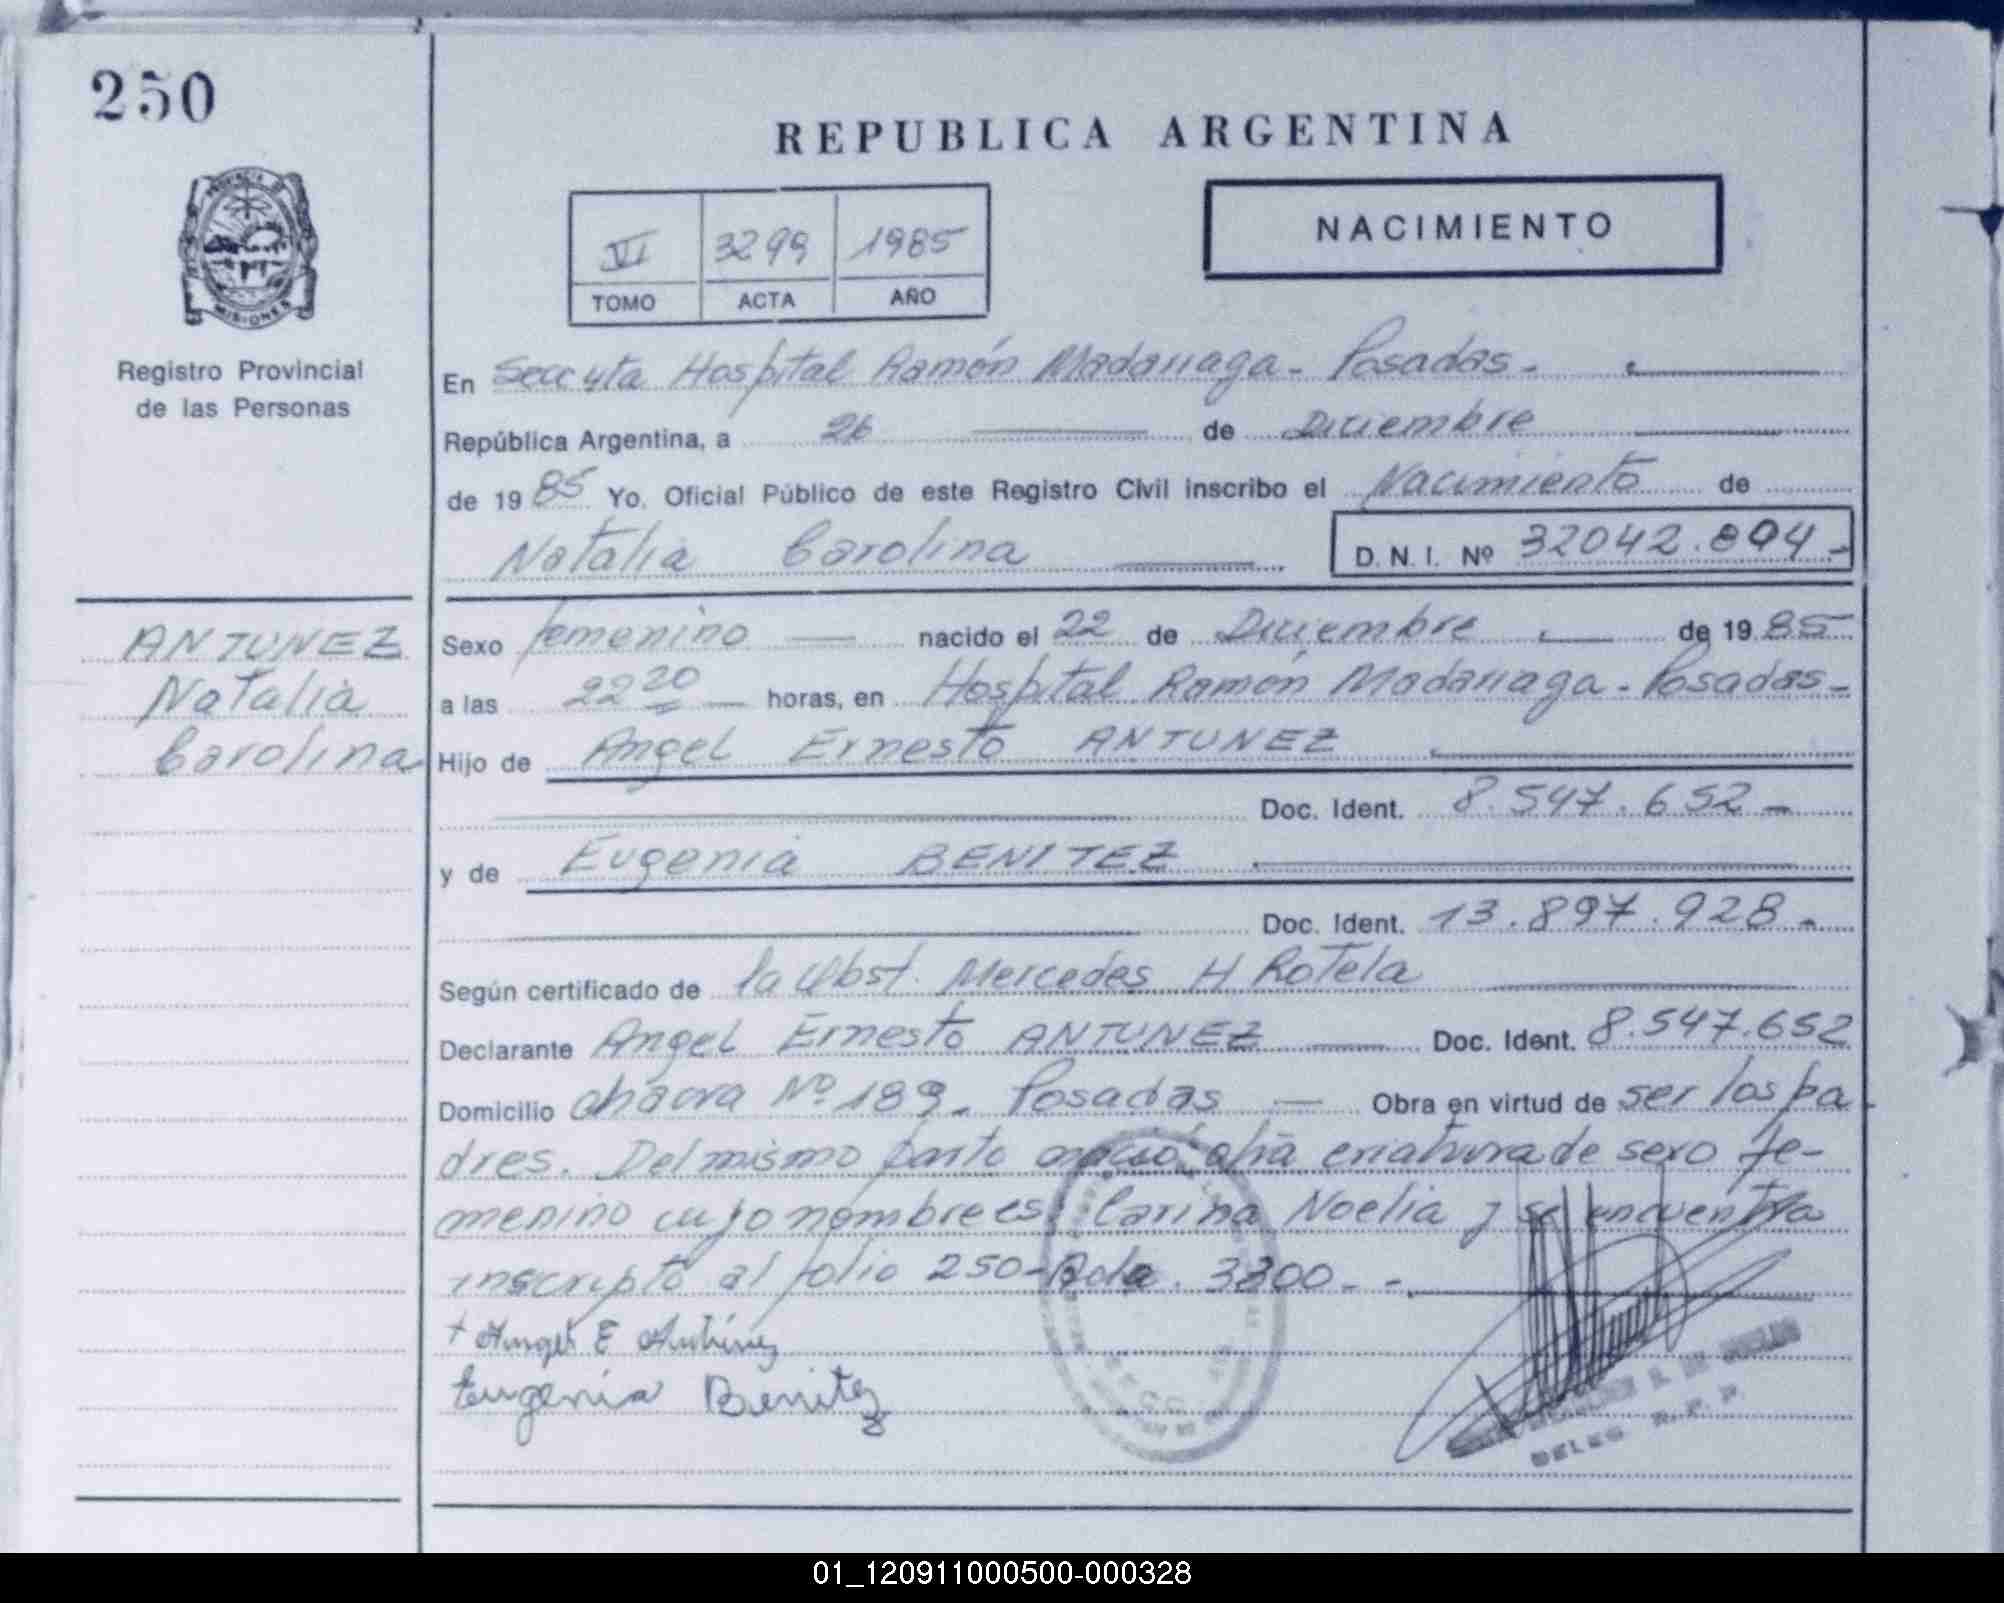 250
REPUBLICA ARGENTINA
NACIMIENTO
VI 3299 1985
TOMO ACTA AÑO
PROVINCIA D
MISIONES
Registro Provincial
de las Personas
En Secc 4ta Hospital Ramón Madariaga - Posadas -
República Argentina, a 26 de Diciembre
de 1985 Yo. Oficial Público de este Registro Civil inscribo el Nacimiento de
Natalia Carolina D. N. I. Nº 32042.894 -
ANTUNEZ
Natalia
Carolina
Sexo femenino nacido el 22 de Diciembre de 1985
a las 22 20 horas, en Hospital Ramón Madariaga - Posadas -
Hijo de Angel Ernesto ANTUNEZ
Doc. Ident. 8.547.652 -
y de Eugenia BENITEZ
Doc. Ident. 13.897.928 -
Según certificado de la Obst. Mercedes H Rotela
Declarante Angel Ernesto ANTUNEZ Doc. Ident. 8.547.652
Domicilio chacra Nº 189 - Posadas Obra en virtud de ser los pa
dres. Del mismo parto nació otra criatura de sexo fe-
menino cuyo nombre es: Carina Noelia y se encuentra
inscripto al folio 250 - Acta. 3300 - -
+ Angel E Antúnez
Eugenia Benitez
DELEG. R. P. P.
01_120911000500-000328